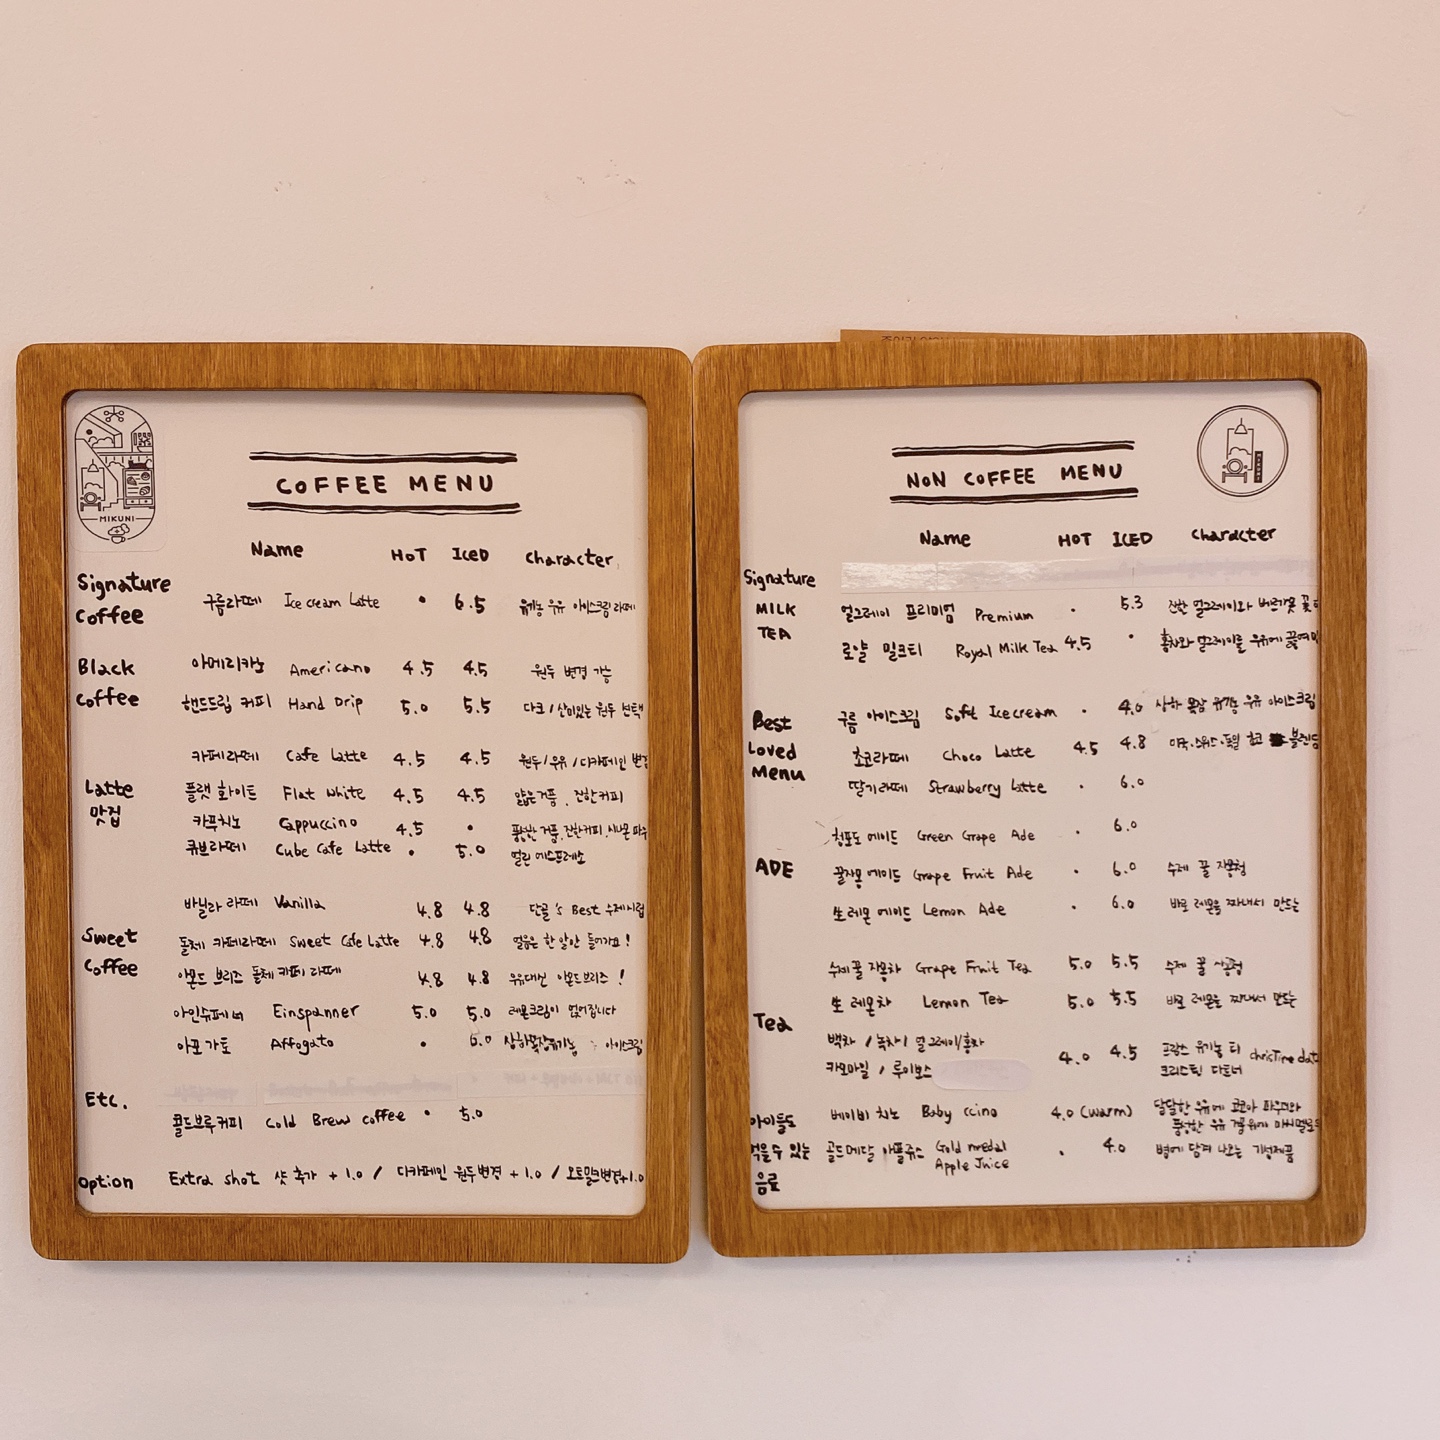 MIKUNI
COFFEE MENU
Name HOT ICED Character
Signature Coffee
구름라떼 Ice cream Latte • 6.5 유기농 우유 아이스크림 라떼
Black Coffee
아메리카노 Americano 4.5 4.5 원두 변경 가능
핸드드립 커피 Hand Drip 5.0 5.5 다크 / 산미있는 원두 선택
Latte 맛집
카페라떼 Cafe Latte 4.5 4.5 원두/우유/디카페인 변경
플랫 화이트 Flat White 4.5 4.5 얇은거품, 진한커피
카푸치노 Cappuccino 4.5 • 풍성한 거품, 진한커피, 시나몬 파우
큐브라떼 Cube Cafe Latte • 5.0 얼린 에스프레소
Sweet Coffee
바닐라 라떼 Vanilla 4.8 4.8 단골's Best 수제시럽
돌체 카페라떼 Sweet Cafe Latte 4.8 4.8 얼음은 한 알만 들어가요!
아몬드 브리즈 돌체 카페 라떼 4.8 4.8 우유대신 아몬드브리즈!
아인슈페너 Einspanner 5.0 5.0 레몬크림이 얹어집니다
아포가토 Affogato • 6.0 상하목장유기농 아이스크림
Etc.
콜드브루커피 Cold Brew coffee • 5.0
Option Extra shot 샷 추가 +1.0 / 디카페인 원두변경 +1.0 / 오트밀크변경+1.0
NON COFFEE MENU
Name HOT ICED Character
Signature MILK TEA
얼그레이 프리미엄 Premium • 5.3 진한 얼그레이와 버터가 꽃
로얄 밀크티 Royal Milk Tea 4.5 • 홍차와 얼그레이를 우유에 끓여
Best Loved Menu
구름 아이스크림 Soft Icecream • 4.0 상하 목장 유기농 우유 아이스크림
초코라떼 Choco Latte 4.5 4.8 미국·스위스·독일 초코 블렌딩
딸기라떼 Strawberry Latte • 6.0
ADE
청포도 에이드 Green Grape Ade • 6.0
꿀자몽 에이드 Grape Fruit Ade • 6.0 수제 꿀 자몽청
生레몬 에이드 Lemon Ade • 6.0 바로 레몬을 짜내서 만드는
Tea
수제꿀 자몽차 Grape Fruit Tea 5.0 5.5 수제 꿀 자몽청
生 레몬차 Lemon Tea 5.0 5.5 바로 레몬을 짜내서 만드는
백차 / 녹차 / 얼그레이/홍차
카모마일 / 루이보스 4.0 4.5 프랑스 유기농 티 christine dat
크리스틴 다트너
아이들도 먹을수 있는 음료
베이비 치노 Baby ccino 4.0 (warm) 달달한 우유에 코코아 파우더와
풍성한 우유 거품위에 마시멜로우
골드메달 애플쥬스 Gold medal Apple Juice • 4.0 병에 담겨 나오는 기성제품